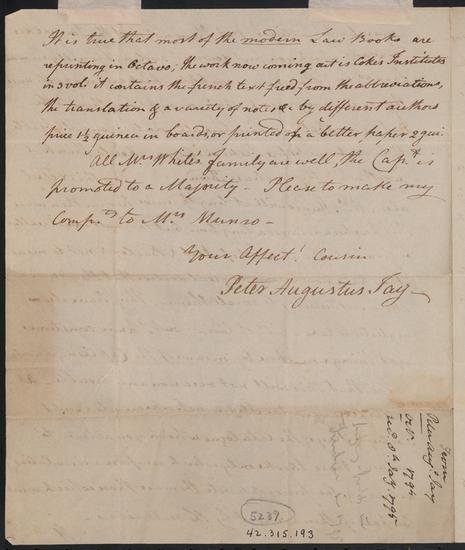 It is true that most of the modern Law Books are
reprinting in Octavo; the work now coming out is Cokes Institutes
in 3 vols: it contains the french text freed from the abbreviations,
the translation & a variety of notes &c by different authors
price 1½ guinea in boards, or printed on a better paper 2 gui.
All Mrs White's family are well, the Capt. is
promoted to a Majority - Please to make my
Comp.ts to Mrs Munro -
Your Affect. Cousin
Peter Augustus Jay
From
Peter Aug. Jay
1794
rec. Jay. 1795
5239
42.315.193